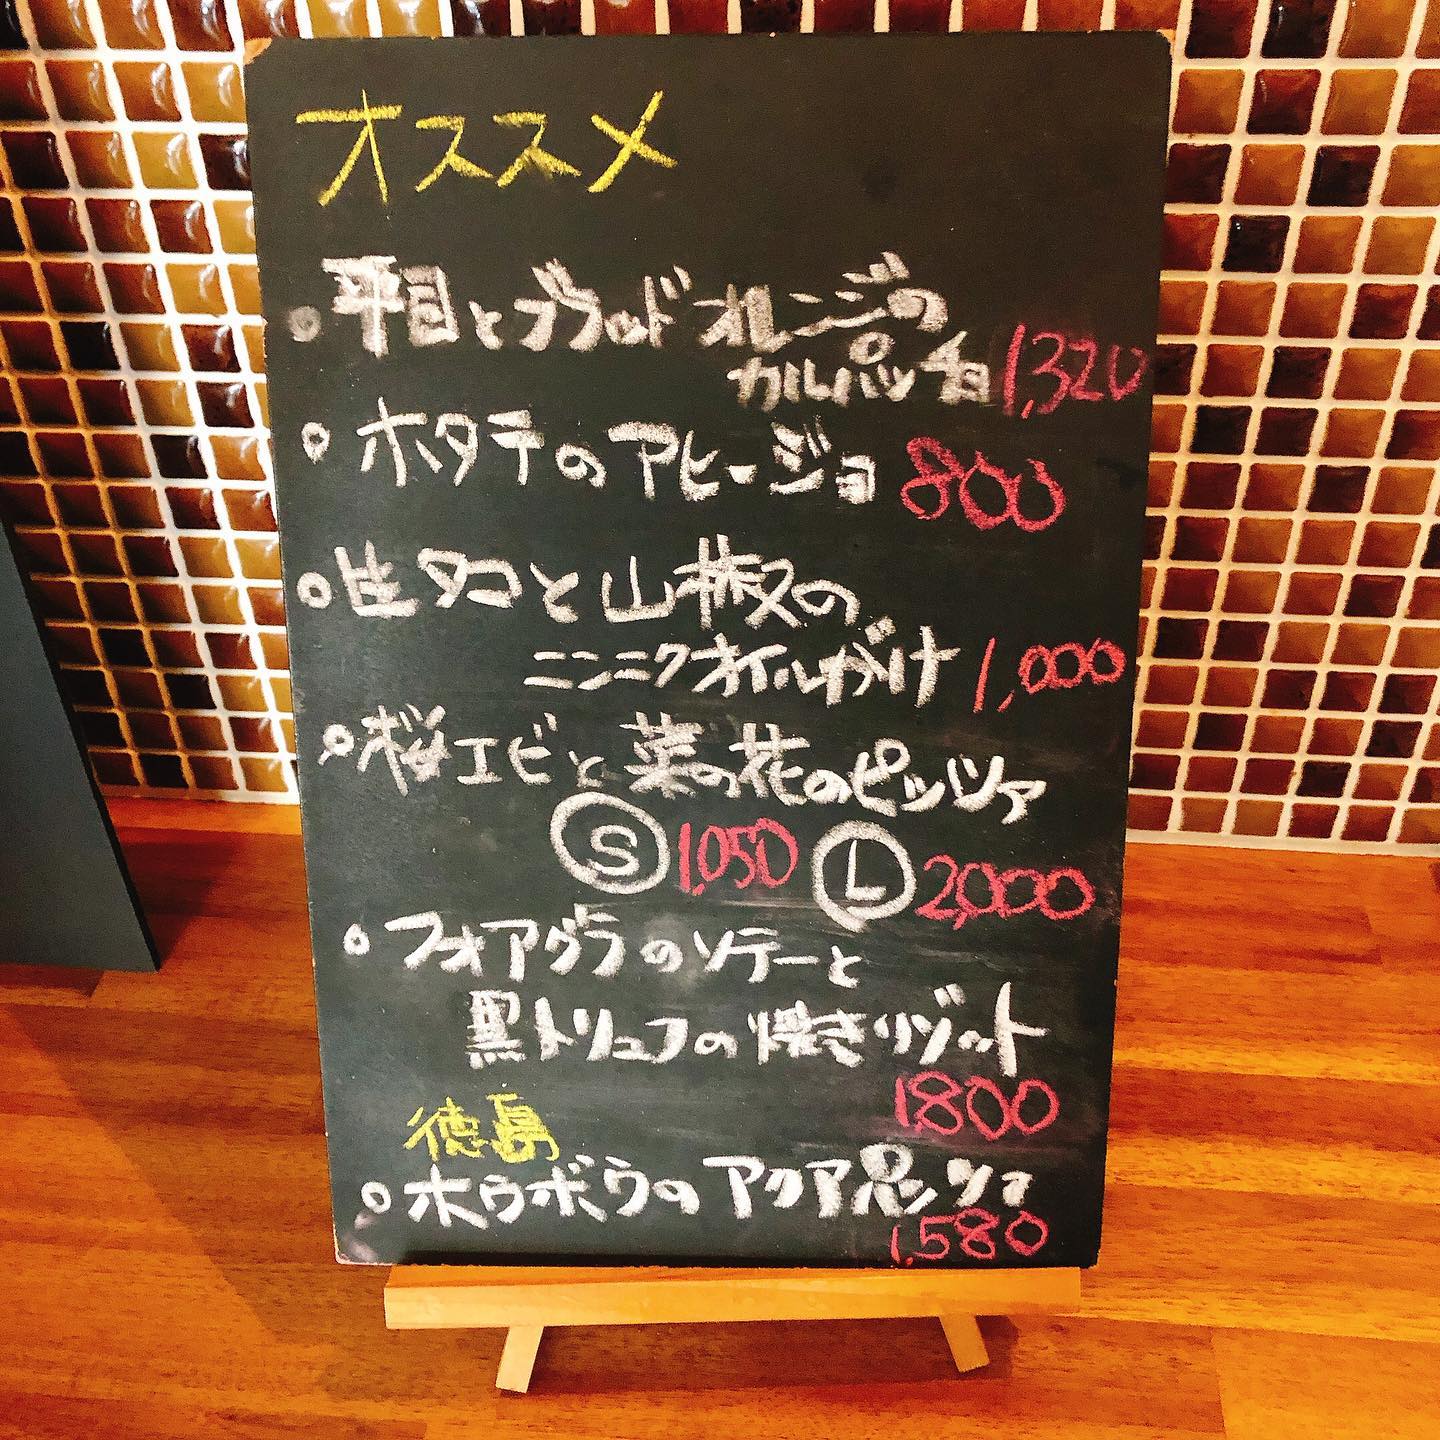 オススメ
平目とブラッドオレンジの
カルパッチョ 1,320
ホタテのアヒージョ 800
生タコと山椒の
ニンニクオイルがけ 1,000
桜エビと菜の花のピッツァ
Ⓢ 1,050 Ⓛ 2,000
フォアグラのソテーと
黒トリュフの焼きリゾット
1,800
徳島
ホウボウのアクアパッツァ
1,580